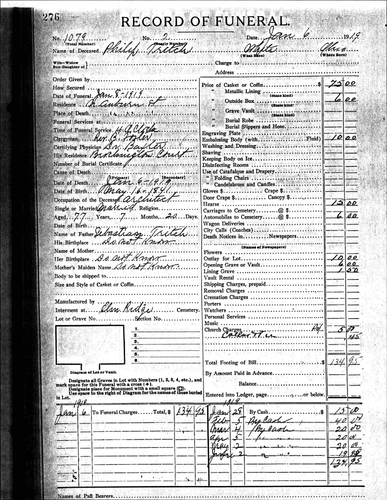 276
RECORD OF FUNERAL.
No. 1079 No. 2 Date Jan 6 1919
(Total Number) (Yearly Number) (When Born) (Where Born)
Name of Deceased Philip Tritch White Ohio
Wife—Widow
Son-Daughter of Charge to
Address
Order Given by
How Secured
Date of Funeral Jan 8-1919
Residence Auburn St
Place of Death
Funeral Services at
Time of Funeral Service
Clergyman Rev.
Certifying Physician Dr.
His Residence Court
Number of Burial Certificate
Cause of Death
Date of Death Jan 6-1919
Date of Birth May 16-1841
Occupation of the Deceased Architect
Single or Married
Aged 77 Years, 7 Months 20 Days
Name of Father Sebastian Tritch
His Birthplace Do not Know
Name of Mother
Her Birthplace Do not Know
Mother's Maiden Name Do not Know
Body to be shipped to
Size and Style of Casket or Coffin
Manufactured by
Interment at Elm Ridge Cemetery.
Lot or Grave No. Section No.
1
2
3
4
5
6
Diagram of Lot or Vault.
Designate all Graves in Lot with Numbers (1, 2, 3, 4, etc.), and
mark space for this Funeral with a cross (+).
Designate place for Monument with a small square (□).
Use space to the right of Diagram for the names of those buried
in Lot.
Price of Casket or Coffin $ 75 00
" Metallic Lining
" Outside Box 6 00
" Grave Vault
" Burial Robe
" Burial Slippers and Hose
Engraving Plate
Embalming Body (with Fluid) 10 00
Washing and Dressing
Shaving
Keeping Body on Ice
Disinfecting Rooms
Use of Catafalque and Drapery
" Folding Chairs
" Candelabrum and Candles
Gloves $ Crape $
Door Crape $ Canopy $
Hearse 12 00
Carriages to Cemetery @ $
Automobiles to Cemetery @ $ 6 00
Wagon Deliveries
City Calls (Coaches)
Death Notices in Newspapers
(Names of Newspapers)
Flowers
Outlay for Lot 10 00
Opening Grave or Vault 6 00
Lining Grave 1 00
Vault Rental
Shipping Charges, prepaid
Removal Charges
Cremation Charges
Porters
Watchers
Personal Services
Music
Church Charges Pd 5 00
Total Footing of Bill $ 134.95
By Amount Paid in Advance
Balance
Entered into Ledger, page or below.
1919 1919
Jan 6 To Funeral Charges Total, $ 134.95 Jan 28 By Cash 15 00
Feb 5 By Cash 40 00
Mar 4 By Cash 20 00
Apr 5 " 20 00
May 2 " 20 00
June 2 " 19 95
134.95
Names of Pall Bearers